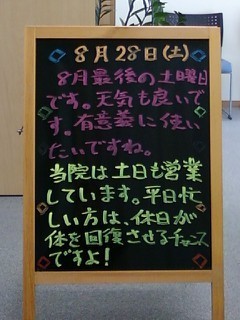 8月28日(土)
8月最後の土曜日
です。天気も良いで
す。有意義に使い
たいですね。
当院は土日も営業
しています。平日忙
しい方は、休日が
体を回復させるチャンス
ですよ!